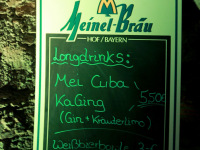 Meinel-Bräu
HOF/BAYERN
Longdrinks:
Mei Cuba
KaGing 5,50€
(Gin + Kräuterlimo)